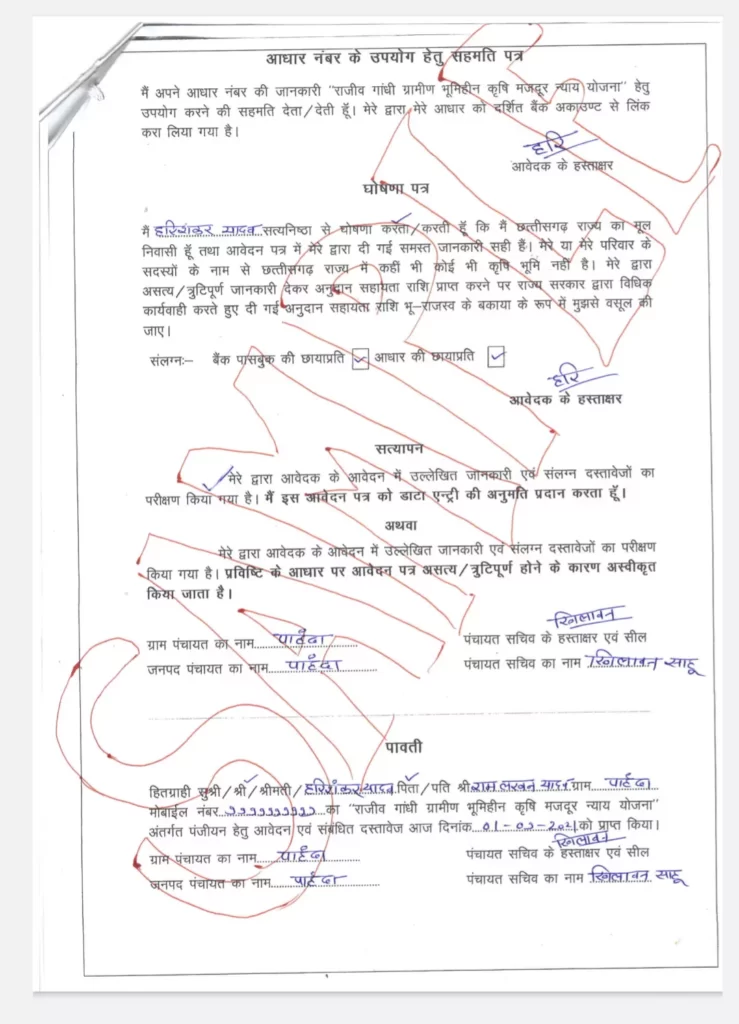 आधार नंबर के उपयोग हेतु सहमति पत्र
मैं अपने आधार नंबर की जानकारी "राजीव गांधी ग्रामीण भूमिहीन कृषि मजदूर न्याय योजना" हेतु
उपयोग करने की सहमति देता/देती हूँ। मेरे द्वारा मेरे आधार को दर्शित बैंक अकाउण्ट से लिंक
करा लिया गया है।
हरि
आवेदक के हस्ताक्षर
घोषणा पत्र
मैं हरिशंकर यादव सत्यनिष्ठा से घोषणा करता/करती हूँ कि मैं छत्तीसगढ़ राज्य का मूल
निवासी हूँ तथा आवेदन पत्र में मेरे द्वारा दी गई समस्त जानकारी सही हैं। मेरे या मेरे परिवार के
सदस्यों के नाम से छत्तीसगढ़ राज्य में कहीं भी कोई भी कृषि भूमि नहीं है। मेरे द्वारा
असत्य/त्रुटिपूर्ण जानकारी देकर अनुदान सहायता राशि प्राप्त करने पर राज्य सरकार द्वारा विधिक
कार्यवाही करते हुए दी गई अनुदान सहायता राशि भू-राजस्व के बकाया के रूप में मुझसे वसूल की
जाए।
संलग्नः- बैंक पासबुक की छायाप्रति ✓ आधार की छायाप्रति ✓
हरि
आवेदक के हस्ताक्षर
सत्यापन
✓ मेरे द्वारा आवेदक के आवेदन में उल्लेखित जानकारी एवं संलग्न दस्तावेजों का
परीक्षण किया गया है। मैं इस आवेदन पत्र को डाटा एन्ट्री की अनुमति प्रदान करता हूँ।
अथवा
मेरे द्वारा आवेदक के आवेदन में उल्लेखित जानकारी एवं संलग्न दस्तावेजों का परीक्षण
किया गया है। प्रविष्टि के आधार पर आवेदन पत्र असत्य/त्रुटिपूर्ण होने के कारण अस्वीकृत
किया जाता है।
खिलावन
ग्राम पंचायत का नाम पाहंदा पंचायत सचिव के हस्ताक्षर एवं सील
जनपद पंचायत का नाम पाहंदा पंचायत सचिव का नाम खिलावन साहू
पावती
हितग्राही सुश्री/श्री/श्रीमती/हरिशंकर यादव पिता/पति श्री राम लखन यादव ग्राम पाहंदा
मोबाईल नंबर का "राजीव गांधी ग्रामीण भूमिहीन कृषि मजदूर न्याय योजना"
अंतर्गत पंजीयन हेतु आवेदन एवं संबंधित दस्तावेज आज दिनांक को प्राप्त किया।
खिलावन
ग्राम पंचायत का नाम पाहंदा पंचायत सचिव के हस्ताक्षर एवं सील
जनपद पंचायत का नाम पाहंदा पंचायत सचिव का नाम खिलावन साहू